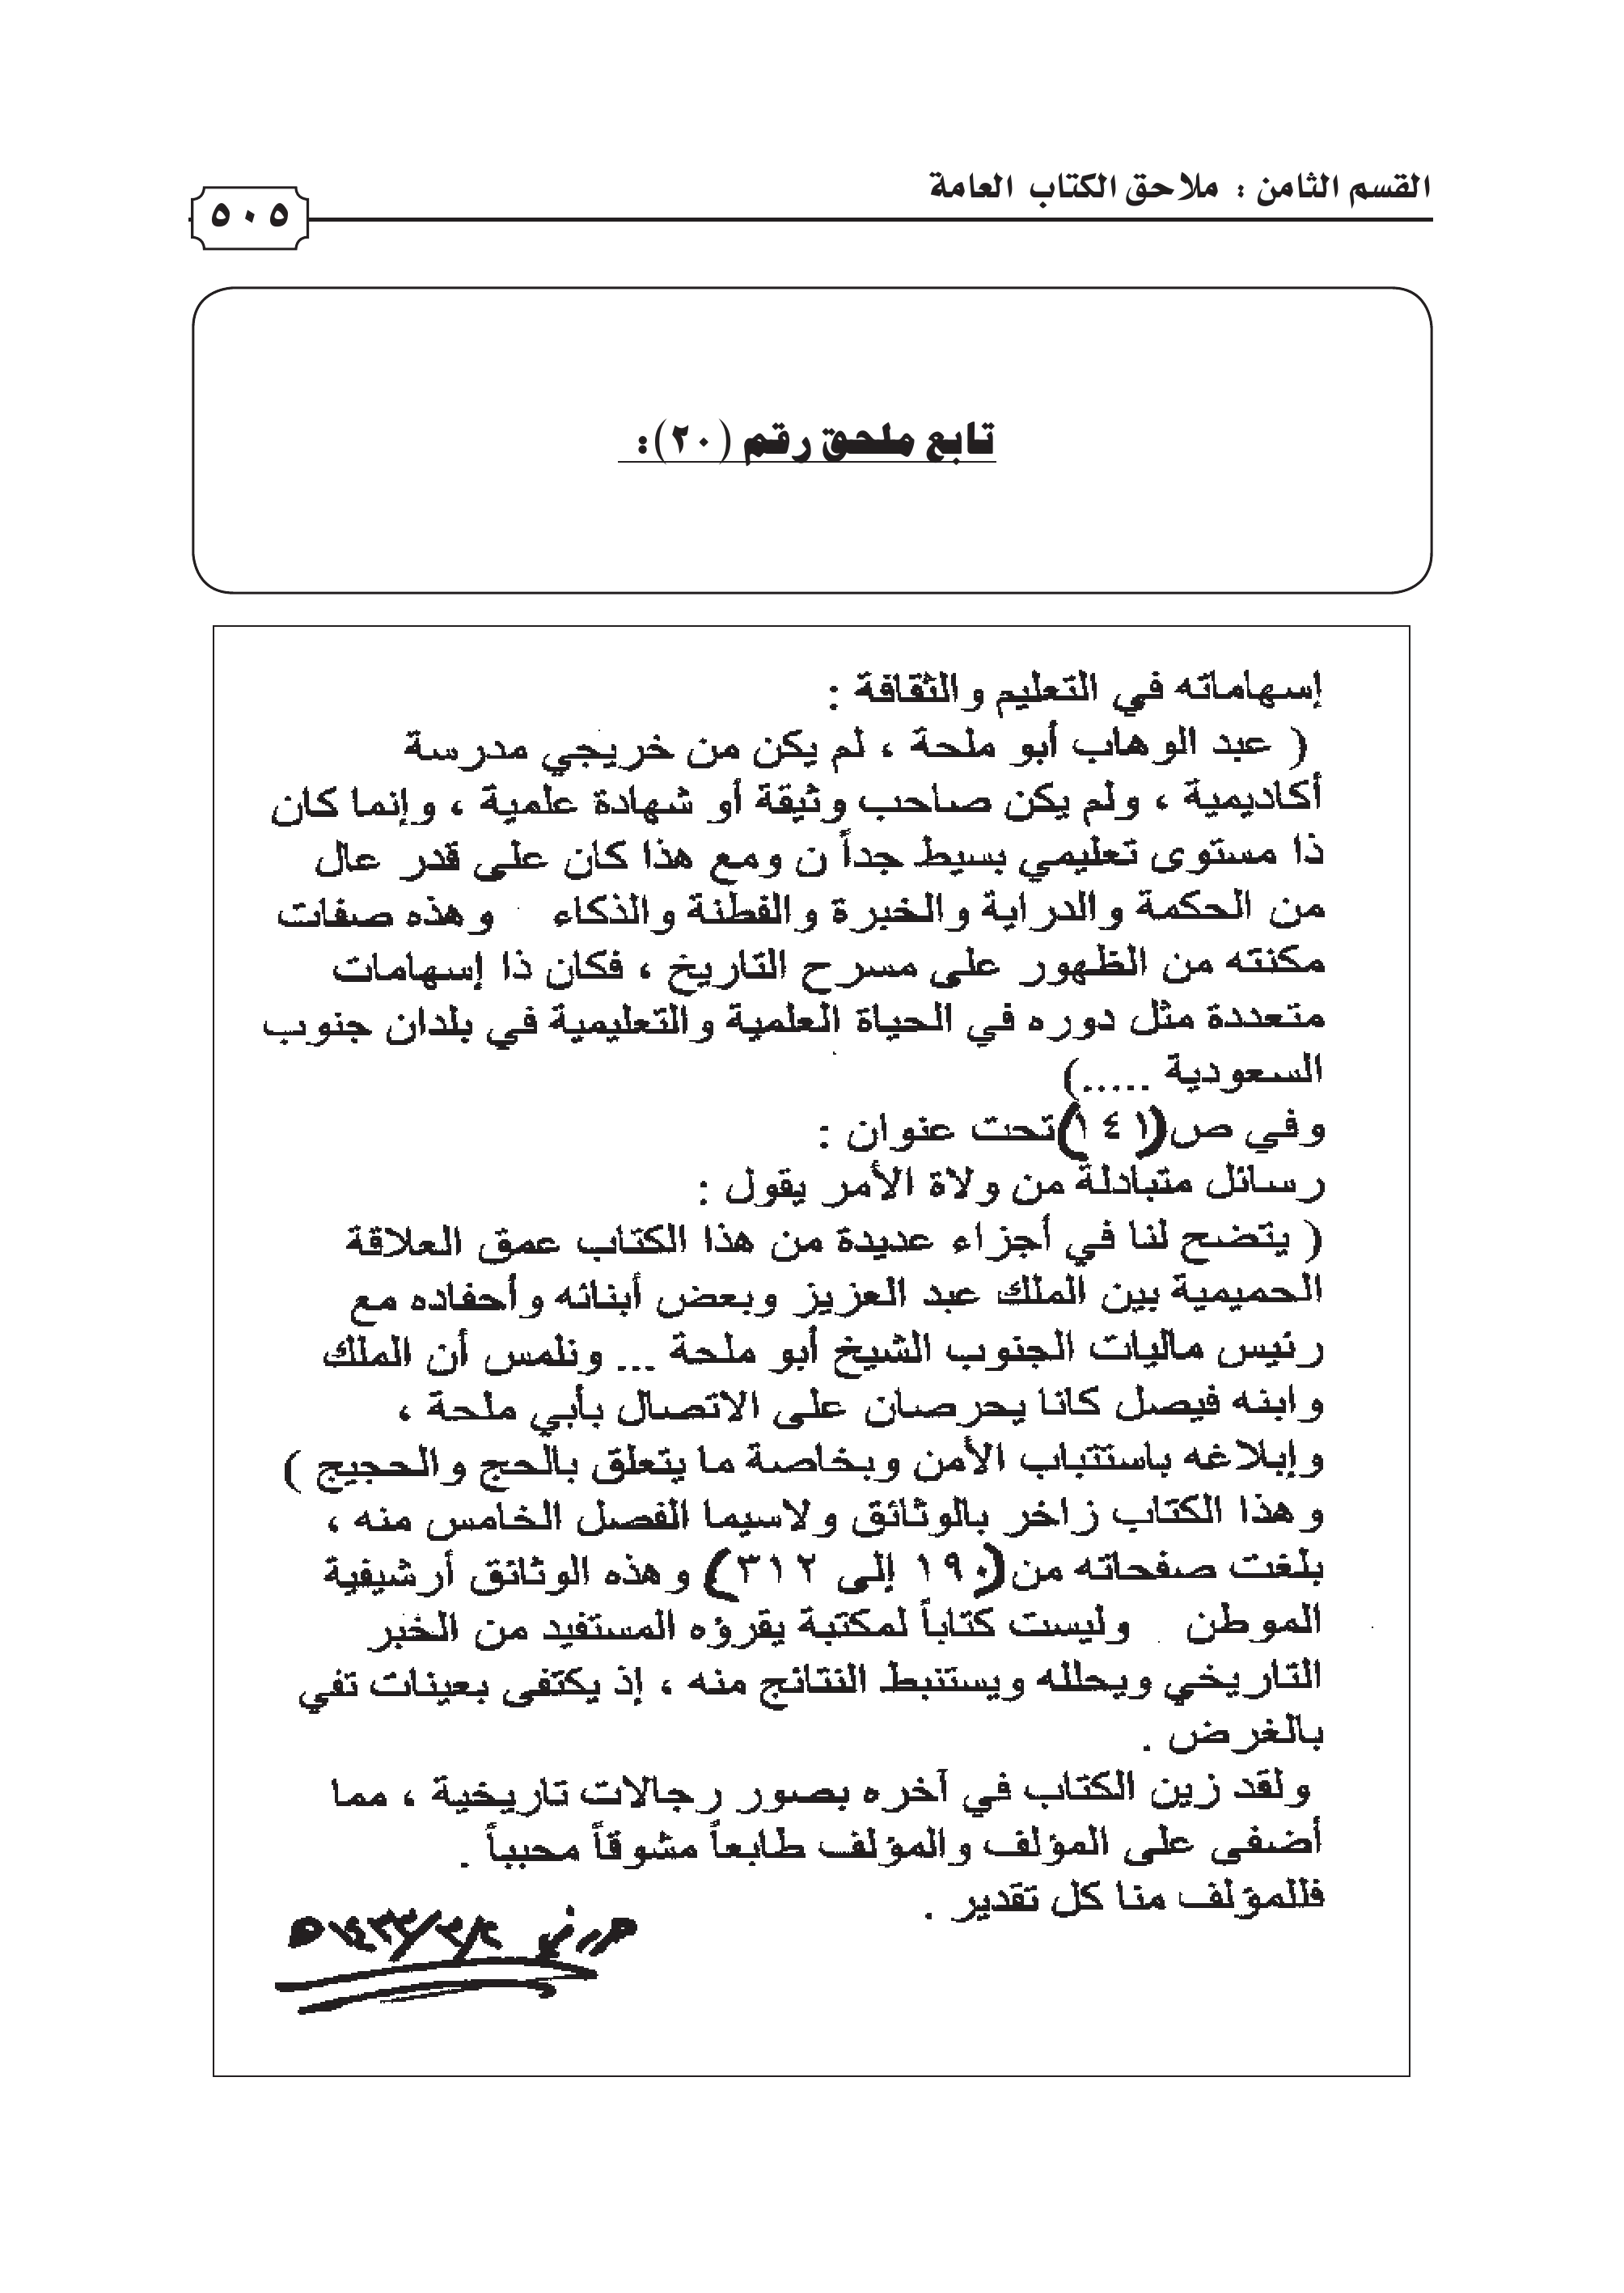 القسم الثامن : ملاحق الكتاب العامة
٥٠٥
تابع ملحق رقم (٢٠):
إسهاماته في التعليم والثقافة :
( عبد الوهاب أبو ملحة ، لم يكن من خريجي مدرسة
أكاديمية ، ولم يكن صاحب وثيقة أو شهادة علمية ، وإنما كان
ذا مستوى تعليمي بسيط جداً ن ومع هذا كان على قدر عال
من الحكمة والدراية والخبرة والفطنة والذكاء وهذه صفات
مكنته من الظهور على مسرح التاريخ ، فكان ذا إسهامات
متعددة مثل دوره في الحياة العلمية والتعليمية في بلدان جنوب
السعودية .....)
وفي ص(١٤١)تحت عنوان :
رسائل متبادلة من ولاة الأمر يقول :
( يتضح لنا في أجزاء عديدة من هذا الكتاب عمق العلاقة
الحميمية بين الملك عبد العزيز وبعض أبنائه وأحفاده مع
رئيس ماليات الجنوب الشيخ أبو ملحة ... ونلمس أن الملك
وابنه فيصل كانا يحرصان على الاتصال بأبي ملحة ،
وإبلاغه باستتباب الأمن وبخاصة ما يتعلق بالحج والحجيج )
وهذا الكتاب زاخر بالوثائق ولاسيما الفصل الخامس منه ،
بلغت صفحاته من(١٩٠ إلى ٣١٢) وهذه الوثائق أرشيفية
الموطن وليست كتاباً لمكتبة يقرؤه المستفيد من الخبر
التاريخي ويحلله ويستنبط النتائج منه ، إذ يكتفى بعينات تفي
بالغرض .
ولقد زين الكتاب في آخره بصور رجالات تاريخية ، مما
أضفى على المؤلف والمؤلف طابعاً مشوقاً محبباً .
فللمؤلف منا كل تقدير .